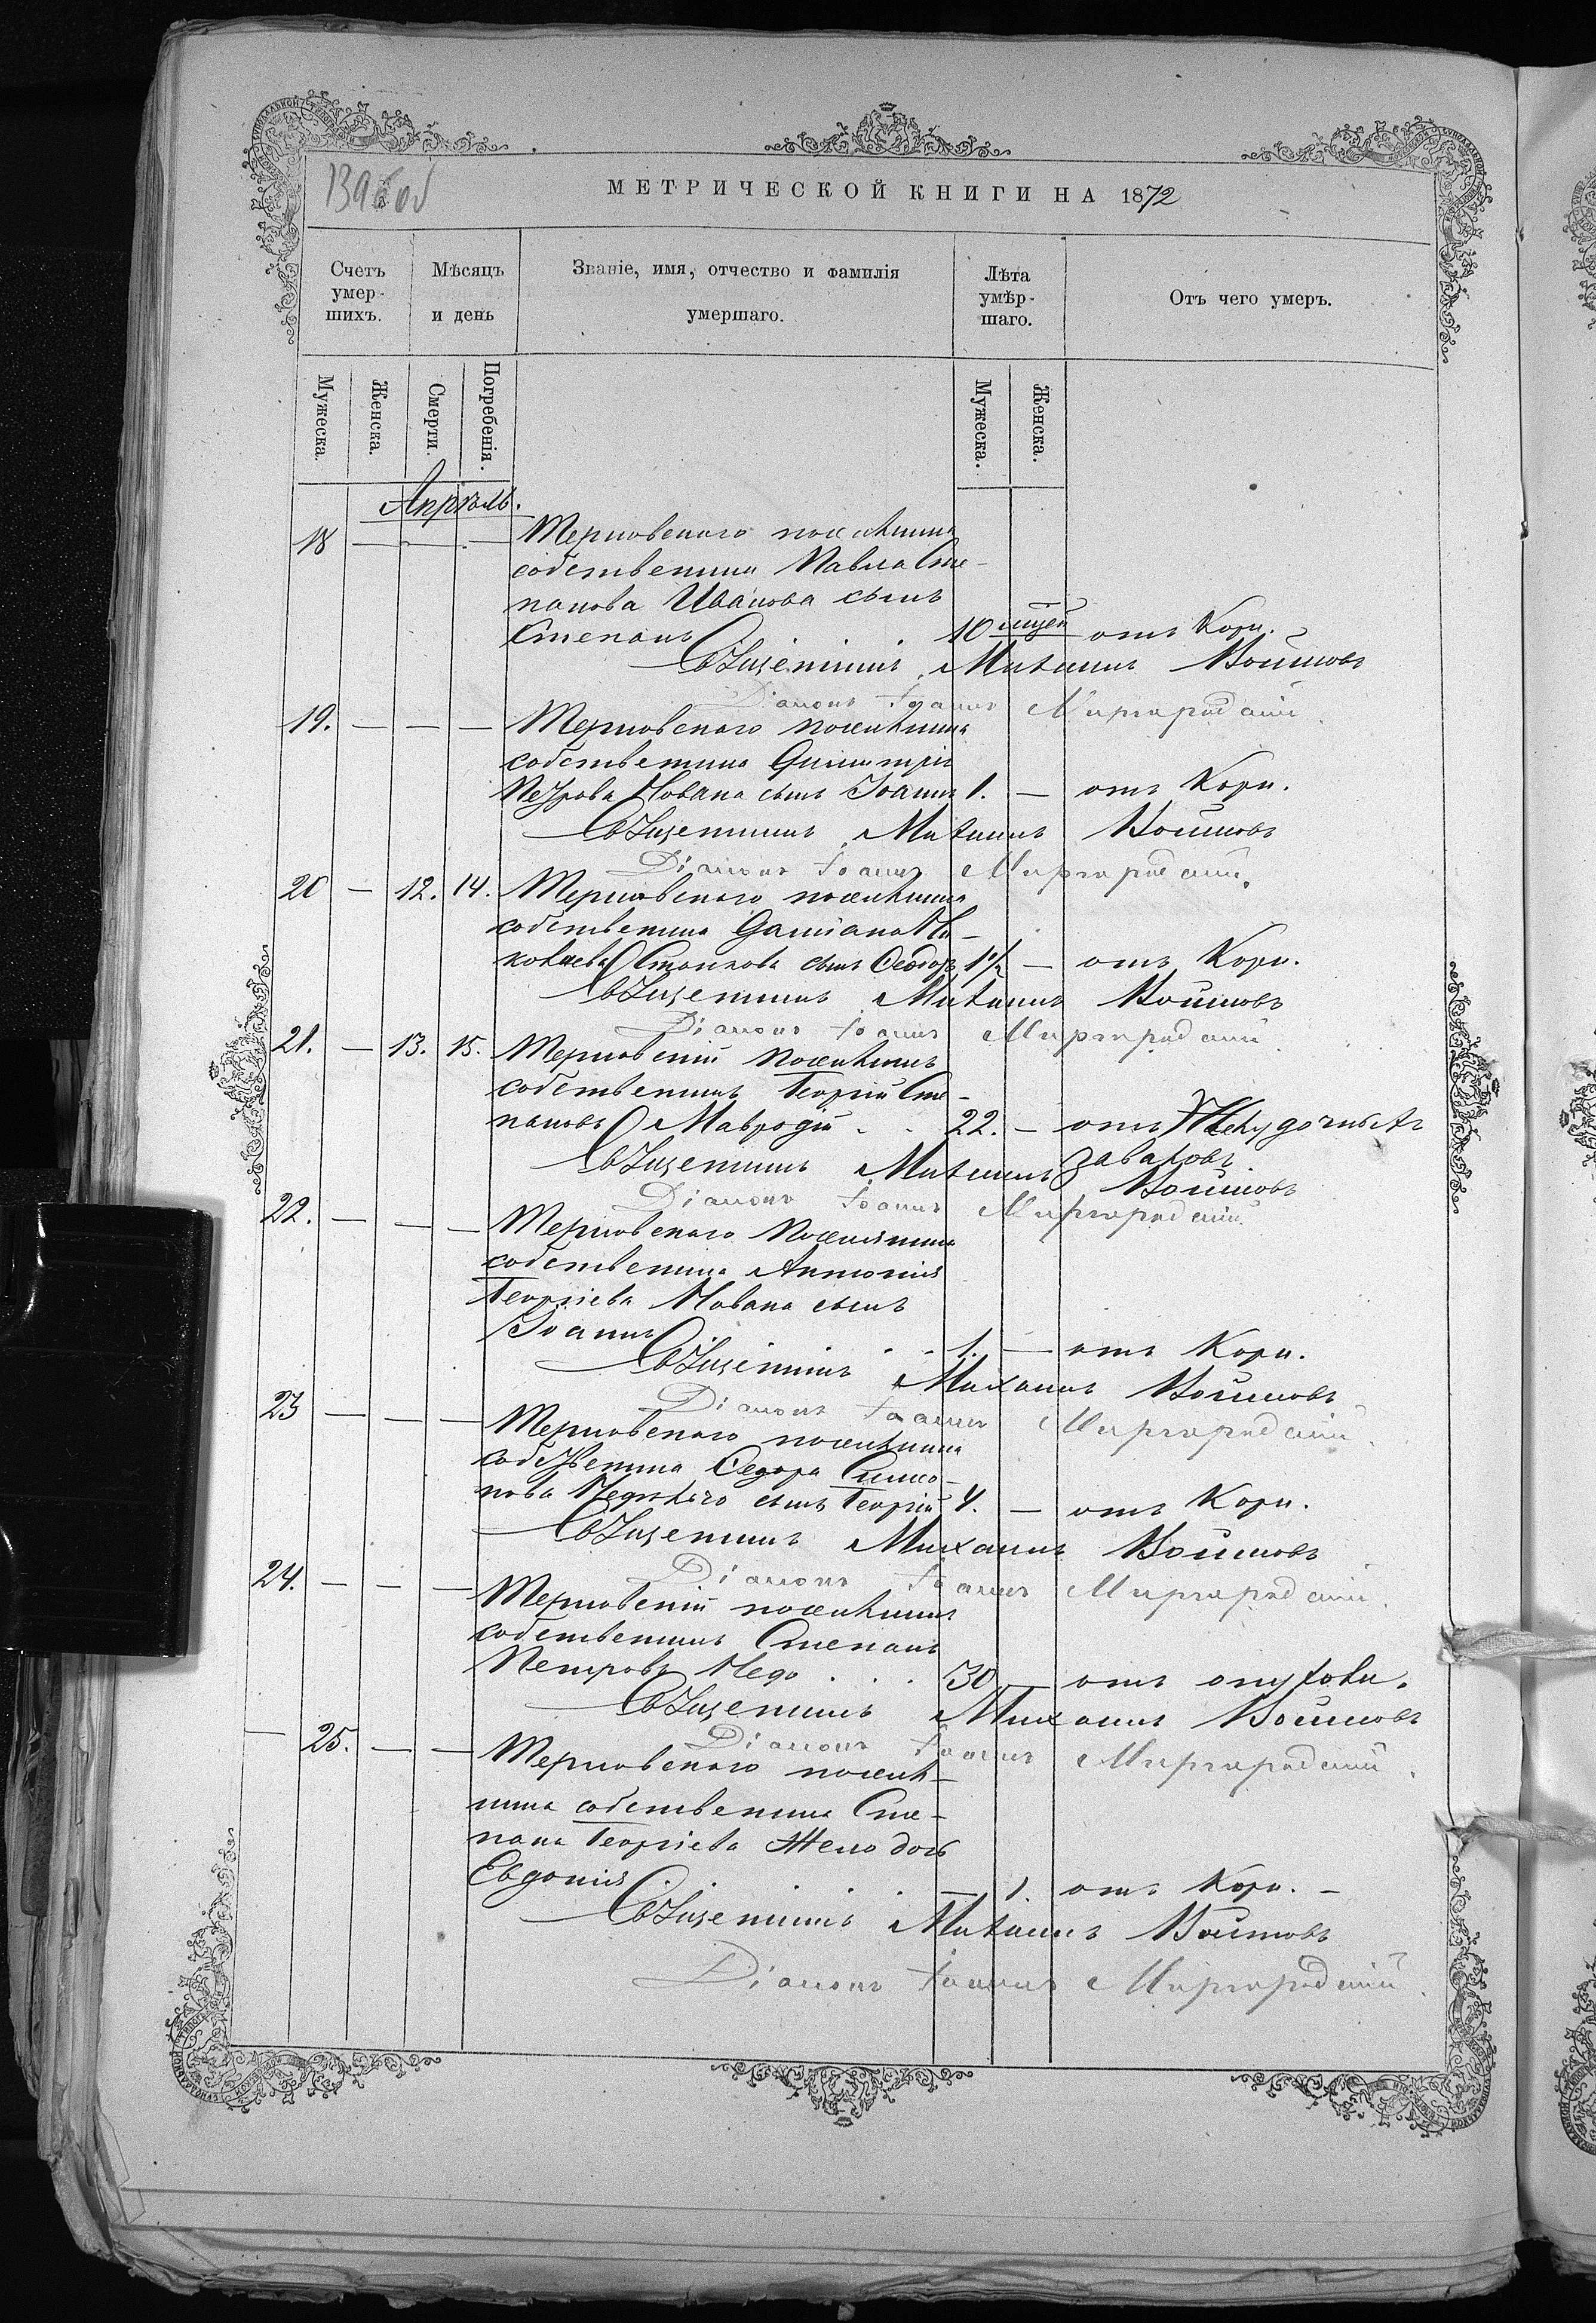 139 об
МЕТРИЧЕСКОЙ КНИГИ НА 1872
Счетъ умерших. Мѣсяцъ и день Званіе, имя, отчество и фамилія умершаго. Лѣта умѣршаго. Отъ чего умеръ.
Мужеска. Женска. Смерти. Погребенія. Мужеска. Женска.
Апрѣль.
18 — — — Терновскаго поселянина
собственника Павла Сте-
панова Иванова сынъ
Степанъ . . 10 мцей отъ Кори.
Священникъ Михаилъ Войновъ
Діаконъ Іоаннъ Миргородскій.
19. — — — Терновскаго поселянина
собственника Димитрія
Петрова Чобана сынъ Іоаннъ 1. — отъ Кори.
Священникъ Михаилъ Войновъ
Діаконъ Іоаннъ Миргородскій.
20 — 12. 14. Терновскаго поселянина
собственника Даміана Ни-
колаева Стоикова сынъ Ѳеодоръ 1½ — отъ Кори.
Священникъ Михаилъ Войновъ
Діаконъ Іоаннъ Миргородскій
21. — 13. 15. Терновскій поселянинъ
собственникъ Георгій Сте-
пановъ Мавродій . . 22. — отъ Желудочныхъ
заваловъ.
Священникъ Михаилъ Войновъ
Діаконъ Іоаннъ Миргородскій
22. — — — Терновскаго поселянина
собственника Антонія
Георгіева Чобана сынъ
Іоаннъ . . 1. — отъ Кори.
Священникъ Михаилъ Войновъ
Діаконъ Іоаннъ Миргородскій.
23 — — — Терновскаго поселянина
собственника Ѳедора Симо-
нова сынъ Георгій 4. — отъ Кори.
Священникъ Михаилъ Войновъ
Діаконъ Іоаннъ Миргородскій.
24. — — — Терновскій поселянинъ
собственникъ Степанъ
Петровъ . . . 30 — отъ опухоли.
Священникъ Михаилъ Войновъ
Діаконъ Іоаннъ Миргородскій.
— 25. — — Терновскаго поселя-
нина собственника Сте-
пана Георгіева Жело дочь
Евдокія . . . . — 1. отъ Кори. —
Священникъ Михаилъ Войновъ
Діаконъ Іоаннъ Миргородскій.